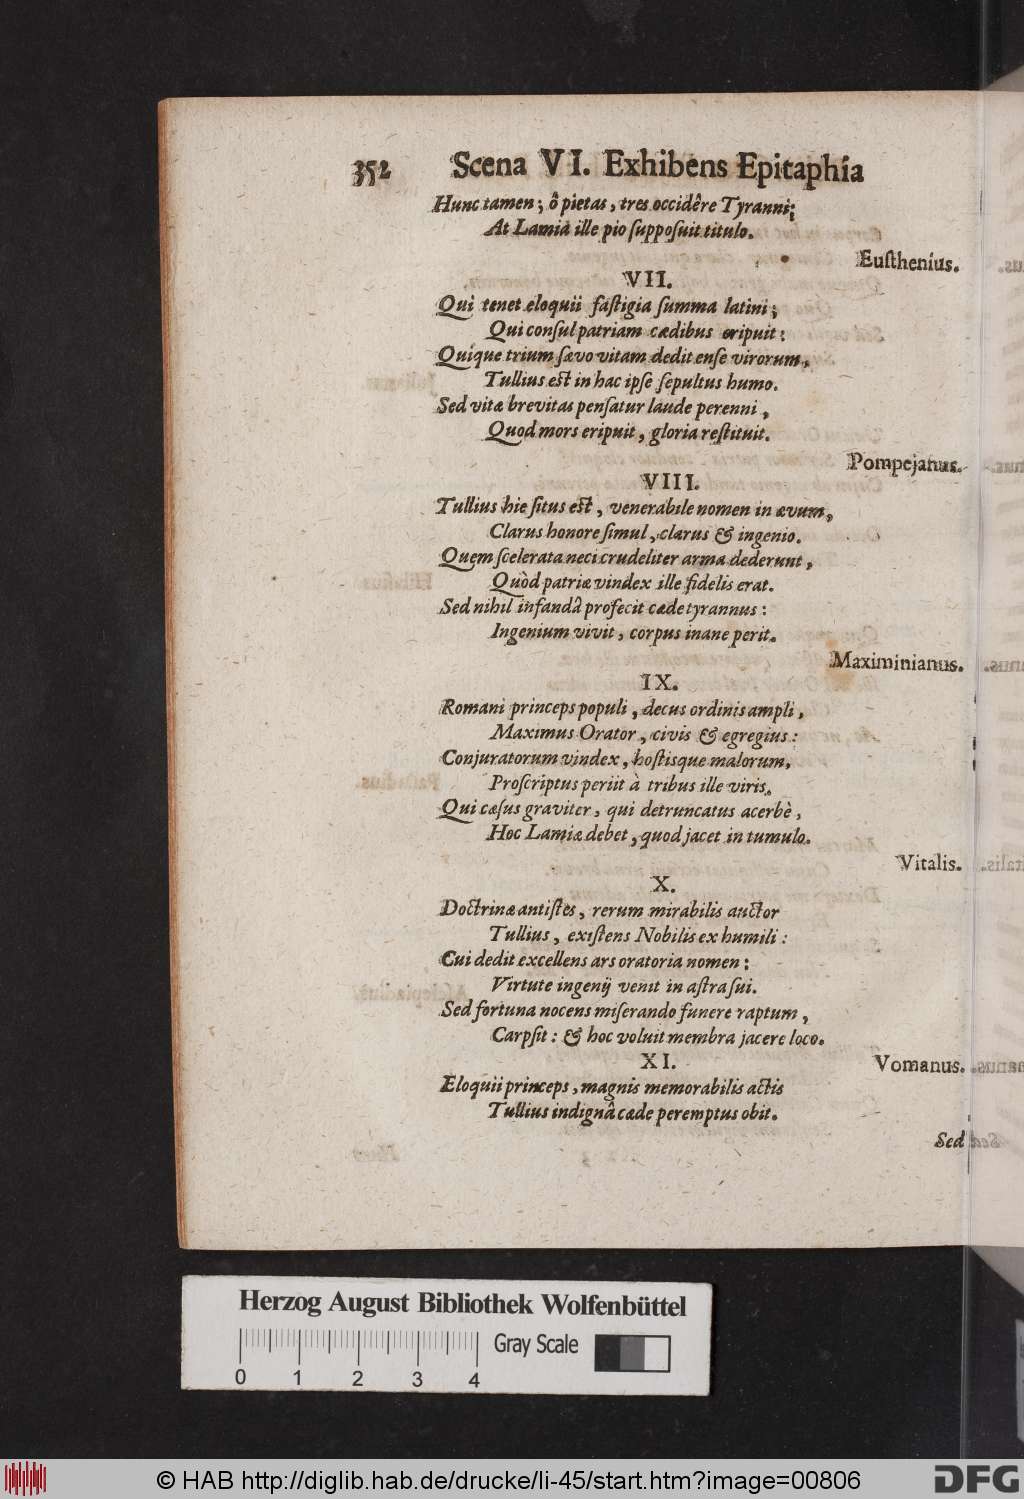 352 Scena VI. Exhibens Epitaphia
Hunc tamen; ô pietas, tres occidêre Tyranni;
At Lamia ille pio ſuppoſuit titulo.
Euſthenius.
VII.
Qui tenet eloquii faſtigia ſumma latini;
Qui conſul patriam cædibus eripuit:
Quique trium ſævo vitam dedit enſe virorum,
Tullius eſt in hac ipſe ſepultus humo.
Sed vitæ brevitas penſatur laude perenni,
Quod mors eripuit, gloria reſtituit.
Pompejanus.
VIII.
Tullius hie ſitus eſt, venerabile nomen in ævum,
Clarus honore ſimul, clarus & ingenio.
Quem ſcelerata neci crudeliter arma dederunt,
Quòd patriæ vindex ille fidelis erat.
Sed nihil infandâ profecit cæde tyrannus:
Ingenium vivit, corpus inane perit.
Maximinianus.
IX.
Romani princeps populi, decus ordinis ampli,
Maximus Orator, civis & egregius:
Conjuratorum vindex, hoſtisque malorum,
Proſcriptus periit à tribus ille viris.
Qui cæſus graviter, qui detruncatus acerbè,
Hoc Lamiæ debet, quod jacet in tumulo.
Vitalis.
X.
Doctrinæ antiſtes, rerum mirabilis auctor
Tullius, exiſtens Nobilis ex humili:
Cui dedit excellens ars oratoria nomen:
Virtute ingenij venit in aſtra ſui.
Sed fortuna nocens miſerando funere raptum,
Carpſit: & hoc voluit membra jacere loco.
XI. Vomanus.
Eloquii princeps, magnis memorabilis actis
Tullius indignâ cæde peremptus obit.
Sed
Herzog August Bibliothek Wolfenbüttel
Gray Scale
0 1 2 3 4
© HAB http://diglib.hab.de/drucke/li-45/start.htm?image=00806
DFG